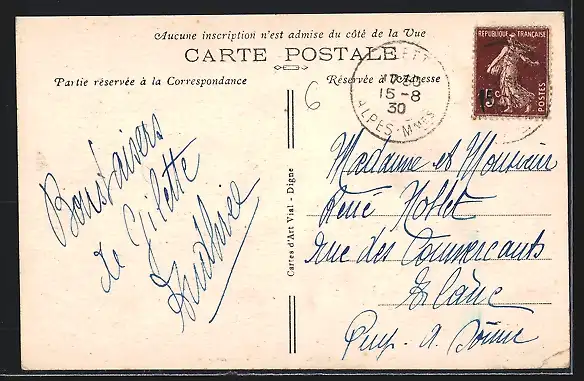 Aucune inscription n'est admise du côté de la Vue
CARTE POSTALE
Partie réservée à la Correspondance
Réservée à l'Adresse
RÉPUBLIQUE FRANÇAISE
15c
POSTES
15-8
30
ALPES-Mmes
6
Bons baisers
de Gilette
Cartes d'Art Vial - Digne
Madame et Monsieur
René Noblet
rue des Commerçants
Puy. d. Dôme